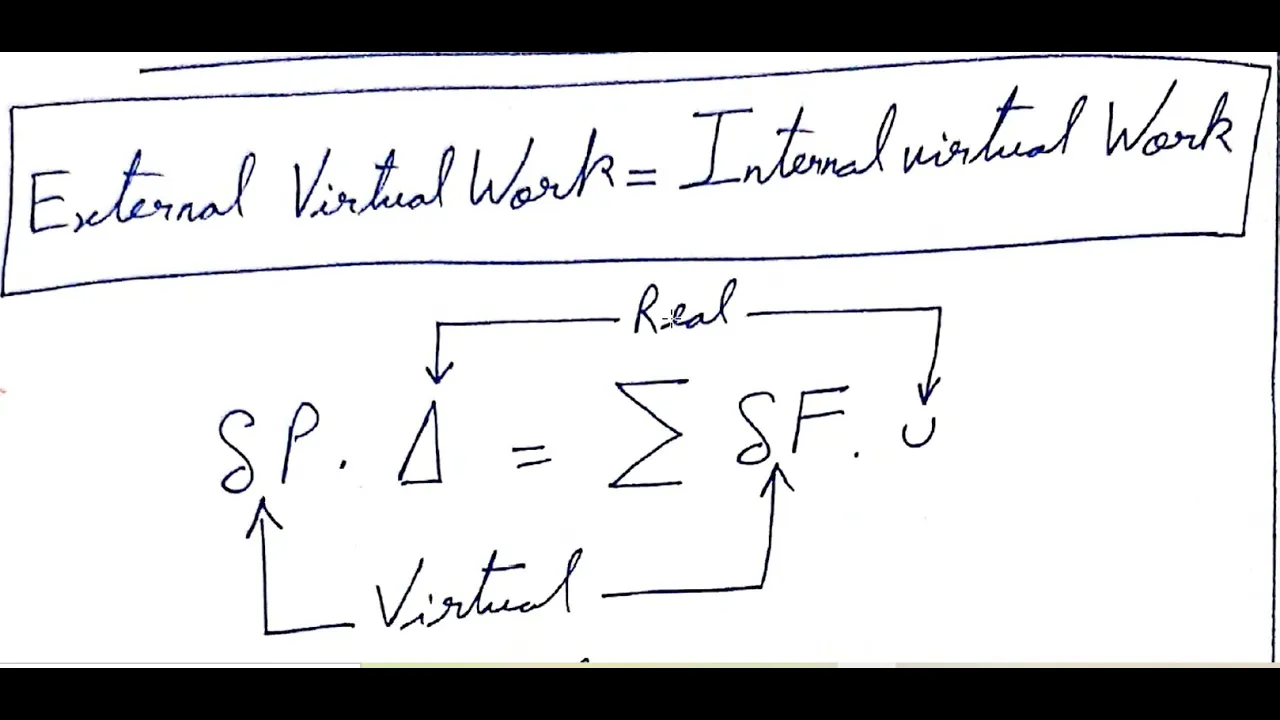 External Virtual Work = Internal virtual Work
Real
δP. Δ = ∑ δF. υ
Virtual